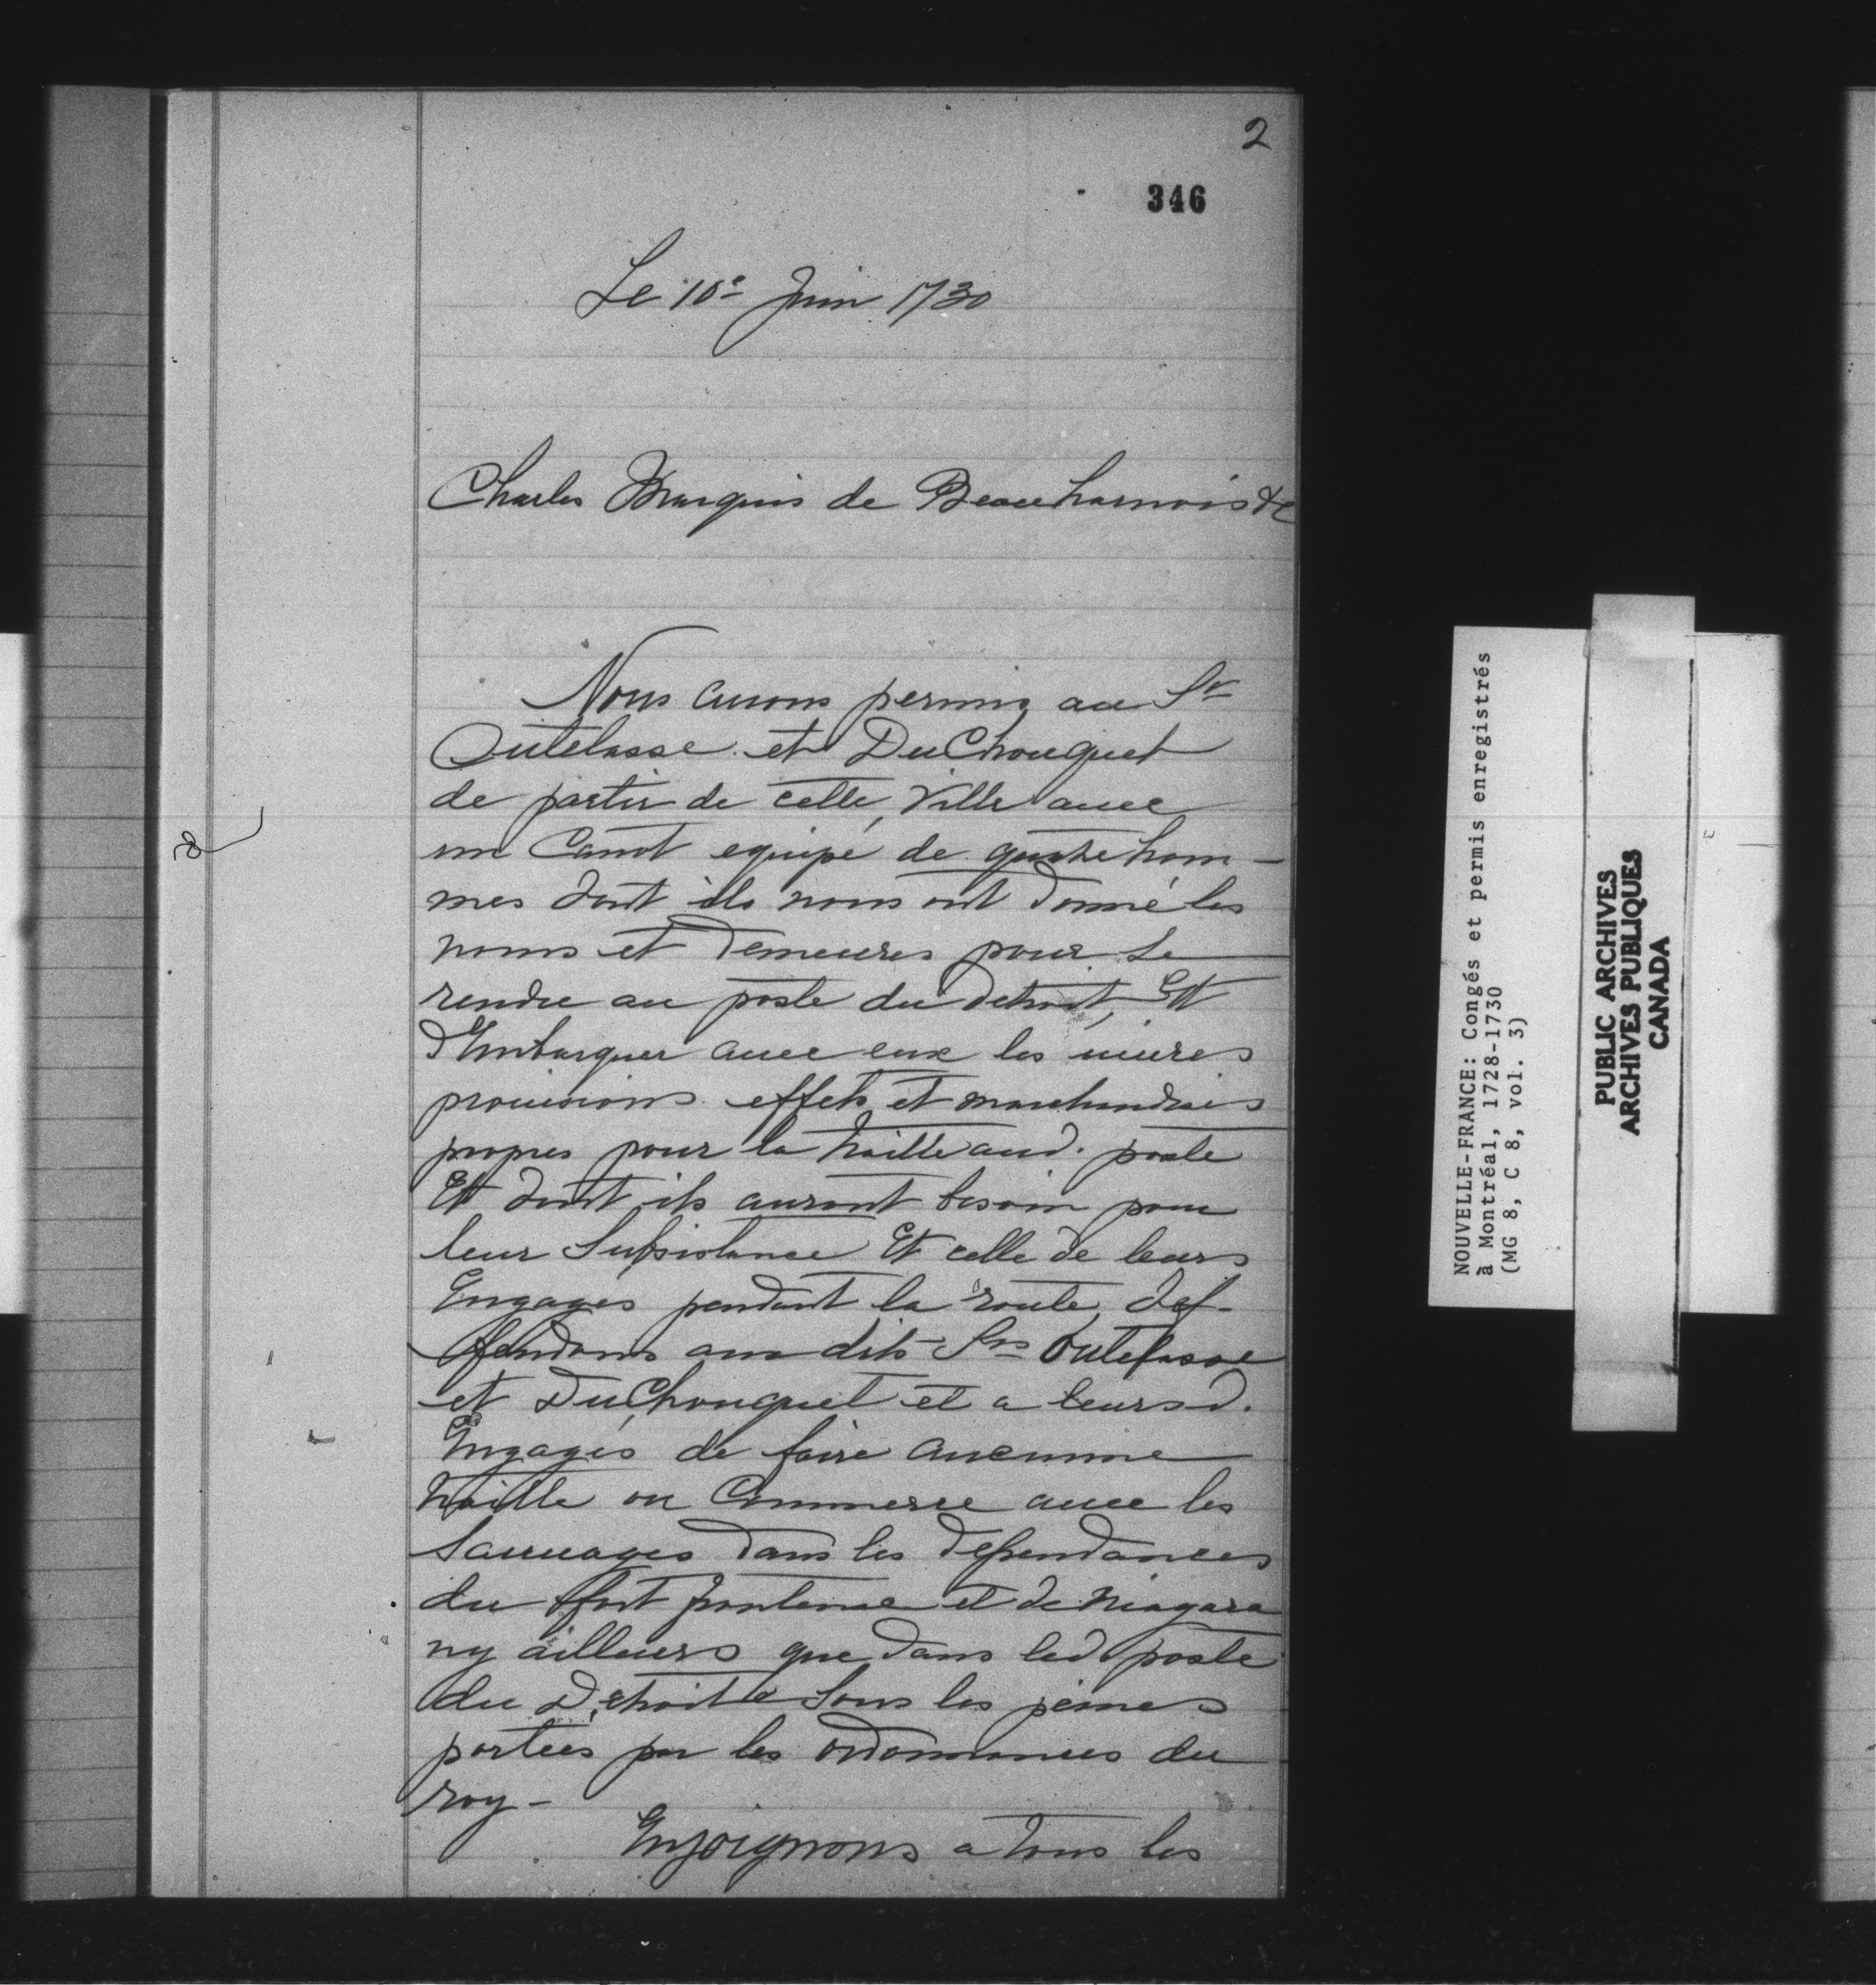 2
346
Le 10e Juin 1730
Charles Marquis de Beauharnois &c
Nous auons permis au Sr
Outelasse et DuChouquet
de partir de cette Ville auec
un Canot equipé de quatre hom-
mes dont ils nous ont donné les
noms et demeures pour se
rendre au poste du detroit, Et
d'Embarquer auec eux les uiures
prouisions effets et marchandises
propres pour la traitte aud. poste
Et dont ils auront besoin pour
leur Subsistance Et celle de leurs
Engagés pendant la route, def-
fendons aux dits Srs Outelasse
et DuChouquet et a leursd.
Engagés de faire aucunne
traitte ou Commerce auec les
Sauuages dans les dependances
du ffort frontenac et de Niagara
ny ailleurs que dans led poste
du Detroit Sous les peines
portées par les ordonnances du
roy -
Enjoignons a tous les
NOUVELLE-FRANCE: Congés et permis enregistrés
à Montréal, 1728-1730
(MG 8, C 8, vol. 3)
PUBLIC ARCHIVES
ARCHIVES PUBLIQUES
CANADA